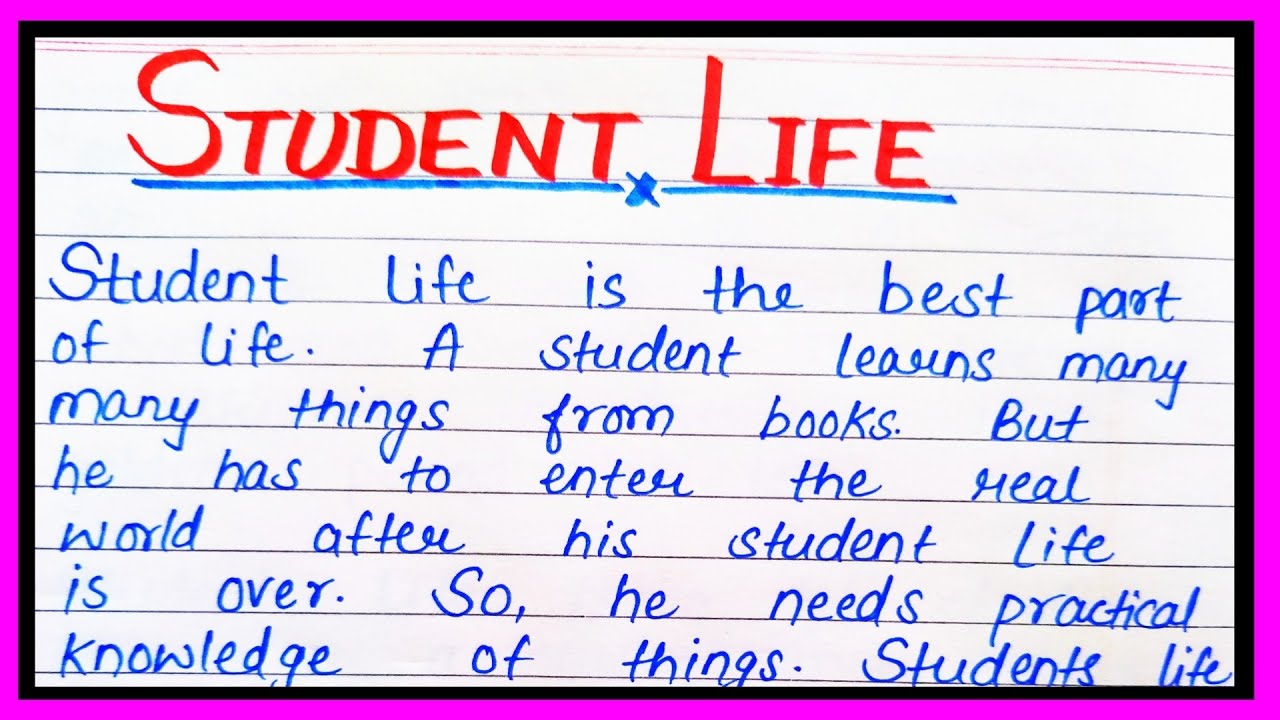 STUDENT LIFE
Student life is the best part
of life. A student learns many
many things from books. But
he has to enter the real
world after his student life
is over. So, he needs practical
knowledge of things. Students life